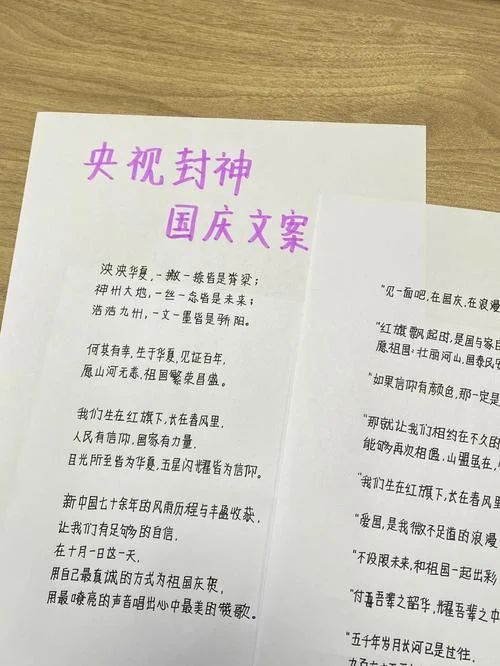 央视封神
国庆文案
泱泱华夏,一撇一捺皆是脊梁;
神州大地,一丝一念皆是未来;
浩浩九州,一文一墨皆是骄阳。
何其有幸,生于华夏,见证百年,
愿山河无恙,祖国繁荣昌盛。
我们生在红旗下,长在春风里,
人民有信仰,国家有力量,
目光所至皆为华夏,五星闪耀皆为信仰。
新中国七十余年的风雨历程与丰盈收获,
让我们有足够的自信,
在十月一日这一天,
用自己最真诚的方式为祖国庆祝,
用最嘹亮的声音唱出心中最美的颂歌。
"见一面吧,在国庆,在浪漫
"红旗飘起时,是国与家
愿祖国:壮丽河山,国泰民安
"如果信仰有颜色,那一定是
"那就让我们相约在不久的
能够再次相遇,山盟虽在,
"我们生在红旗下,长在春风里
"爱国,是我微不足道的浪漫
"不设限未来,和祖国一起出彩
"付吾辈之韶华,耀吾辈之中
"五千年岁月长河已是过往,